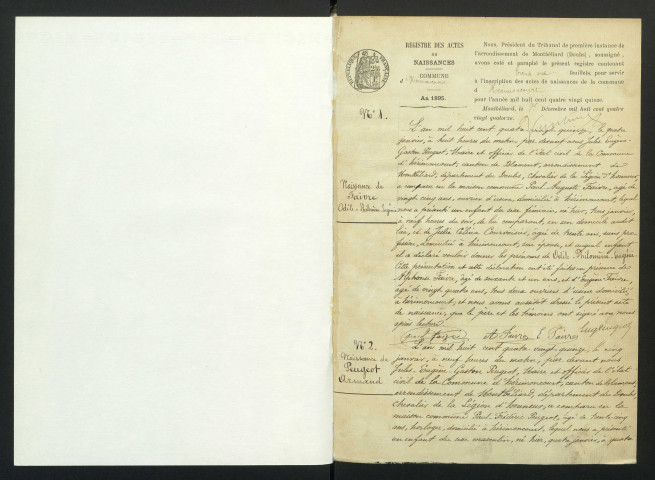 REGISTRE DES ACTES
DE
NAISSANCES
COMMUNE
d'Hérimoncourt
An 1895.
Nous, Président du Tribunal de première instance de
l'arrondissement de Montbéliard (Doubs), soussigné,
avons coté et paraphé le présent registre contenant
feuillets, pour servir
à l'inscription des actes de naissances de la commune
d'Hérimoncourt
pour l'année mil huit cent quatre vingt quinze.
Montbéliard, le Décembre mil huit cent quatre
vingt quatorze.
N° 1.
Naissance de
Faivre
Odile-Philomène Eugénie
L'an mil huit cent quatre vingt quinze, le quatre
janvier, à huit heures du matin, par devant nous Jules Eugène
Gaston Peugeot, Maire et officier de l'état civil de la Commune
d'Hérimoncourt, canton de Blamont, arrondissement de
Montbéliard, département du Doubs, chevalier de la Légion d'honneur,
a comparu en la maison commune Paul Auguste Faivre, âgé de
vingt cinq ans, ouvrier d'usine, domicilié à Hérimoncourt, lequel
nous a présenté un enfant du sexe féminin, né hier, trois janvier,
à vingt heures du soir, de lui comparant, en son domicile audit
lieu, et de Julie Célina Courvoisier, âgée de trente ans, sans pro-
fession, domiciliée à Hérimoncourt, son épouse, et auquel enfant
il a déclaré vouloir donner les prénoms de Odile Philomène Eugénie.
Cette présentation et cette déclaration ont été faites en présence de
Alphonse Faivre, âgé de soixante et un ans, et d'Eugène Faivre,
âgé de vingt quatre ans, tous deux ouvriers d'usine domiciliés
à Hérimoncourt, et nous avons aussitôt dressé le présent acte
de naissance, que le père et les témoins ont signé avec nous
après lecture.
A Faivre E Faivre
N° 2.
Naissance de
Peugeot
Armand
L'an mil huit cent quatre vingt quinze, le cinq
janvier, à neuf heures du matin, par devant nous
Jules Eugène Gaston Peugeot, Maire et officier de l'état
civil de la Commune d'Hérimoncourt, canton de Blamont,
arrondissement de Montbéliard, département du Doubs,
chevalier de la Légion d'honneur, a comparu en la
maison commune Paul Frédéric Peugeot, âgé de trente cinq
ans, horloger, domicilié à Hérimoncourt, lequel nous a présenté
un enfant du sexe masculin, né hier, quatre janvier, à quatre